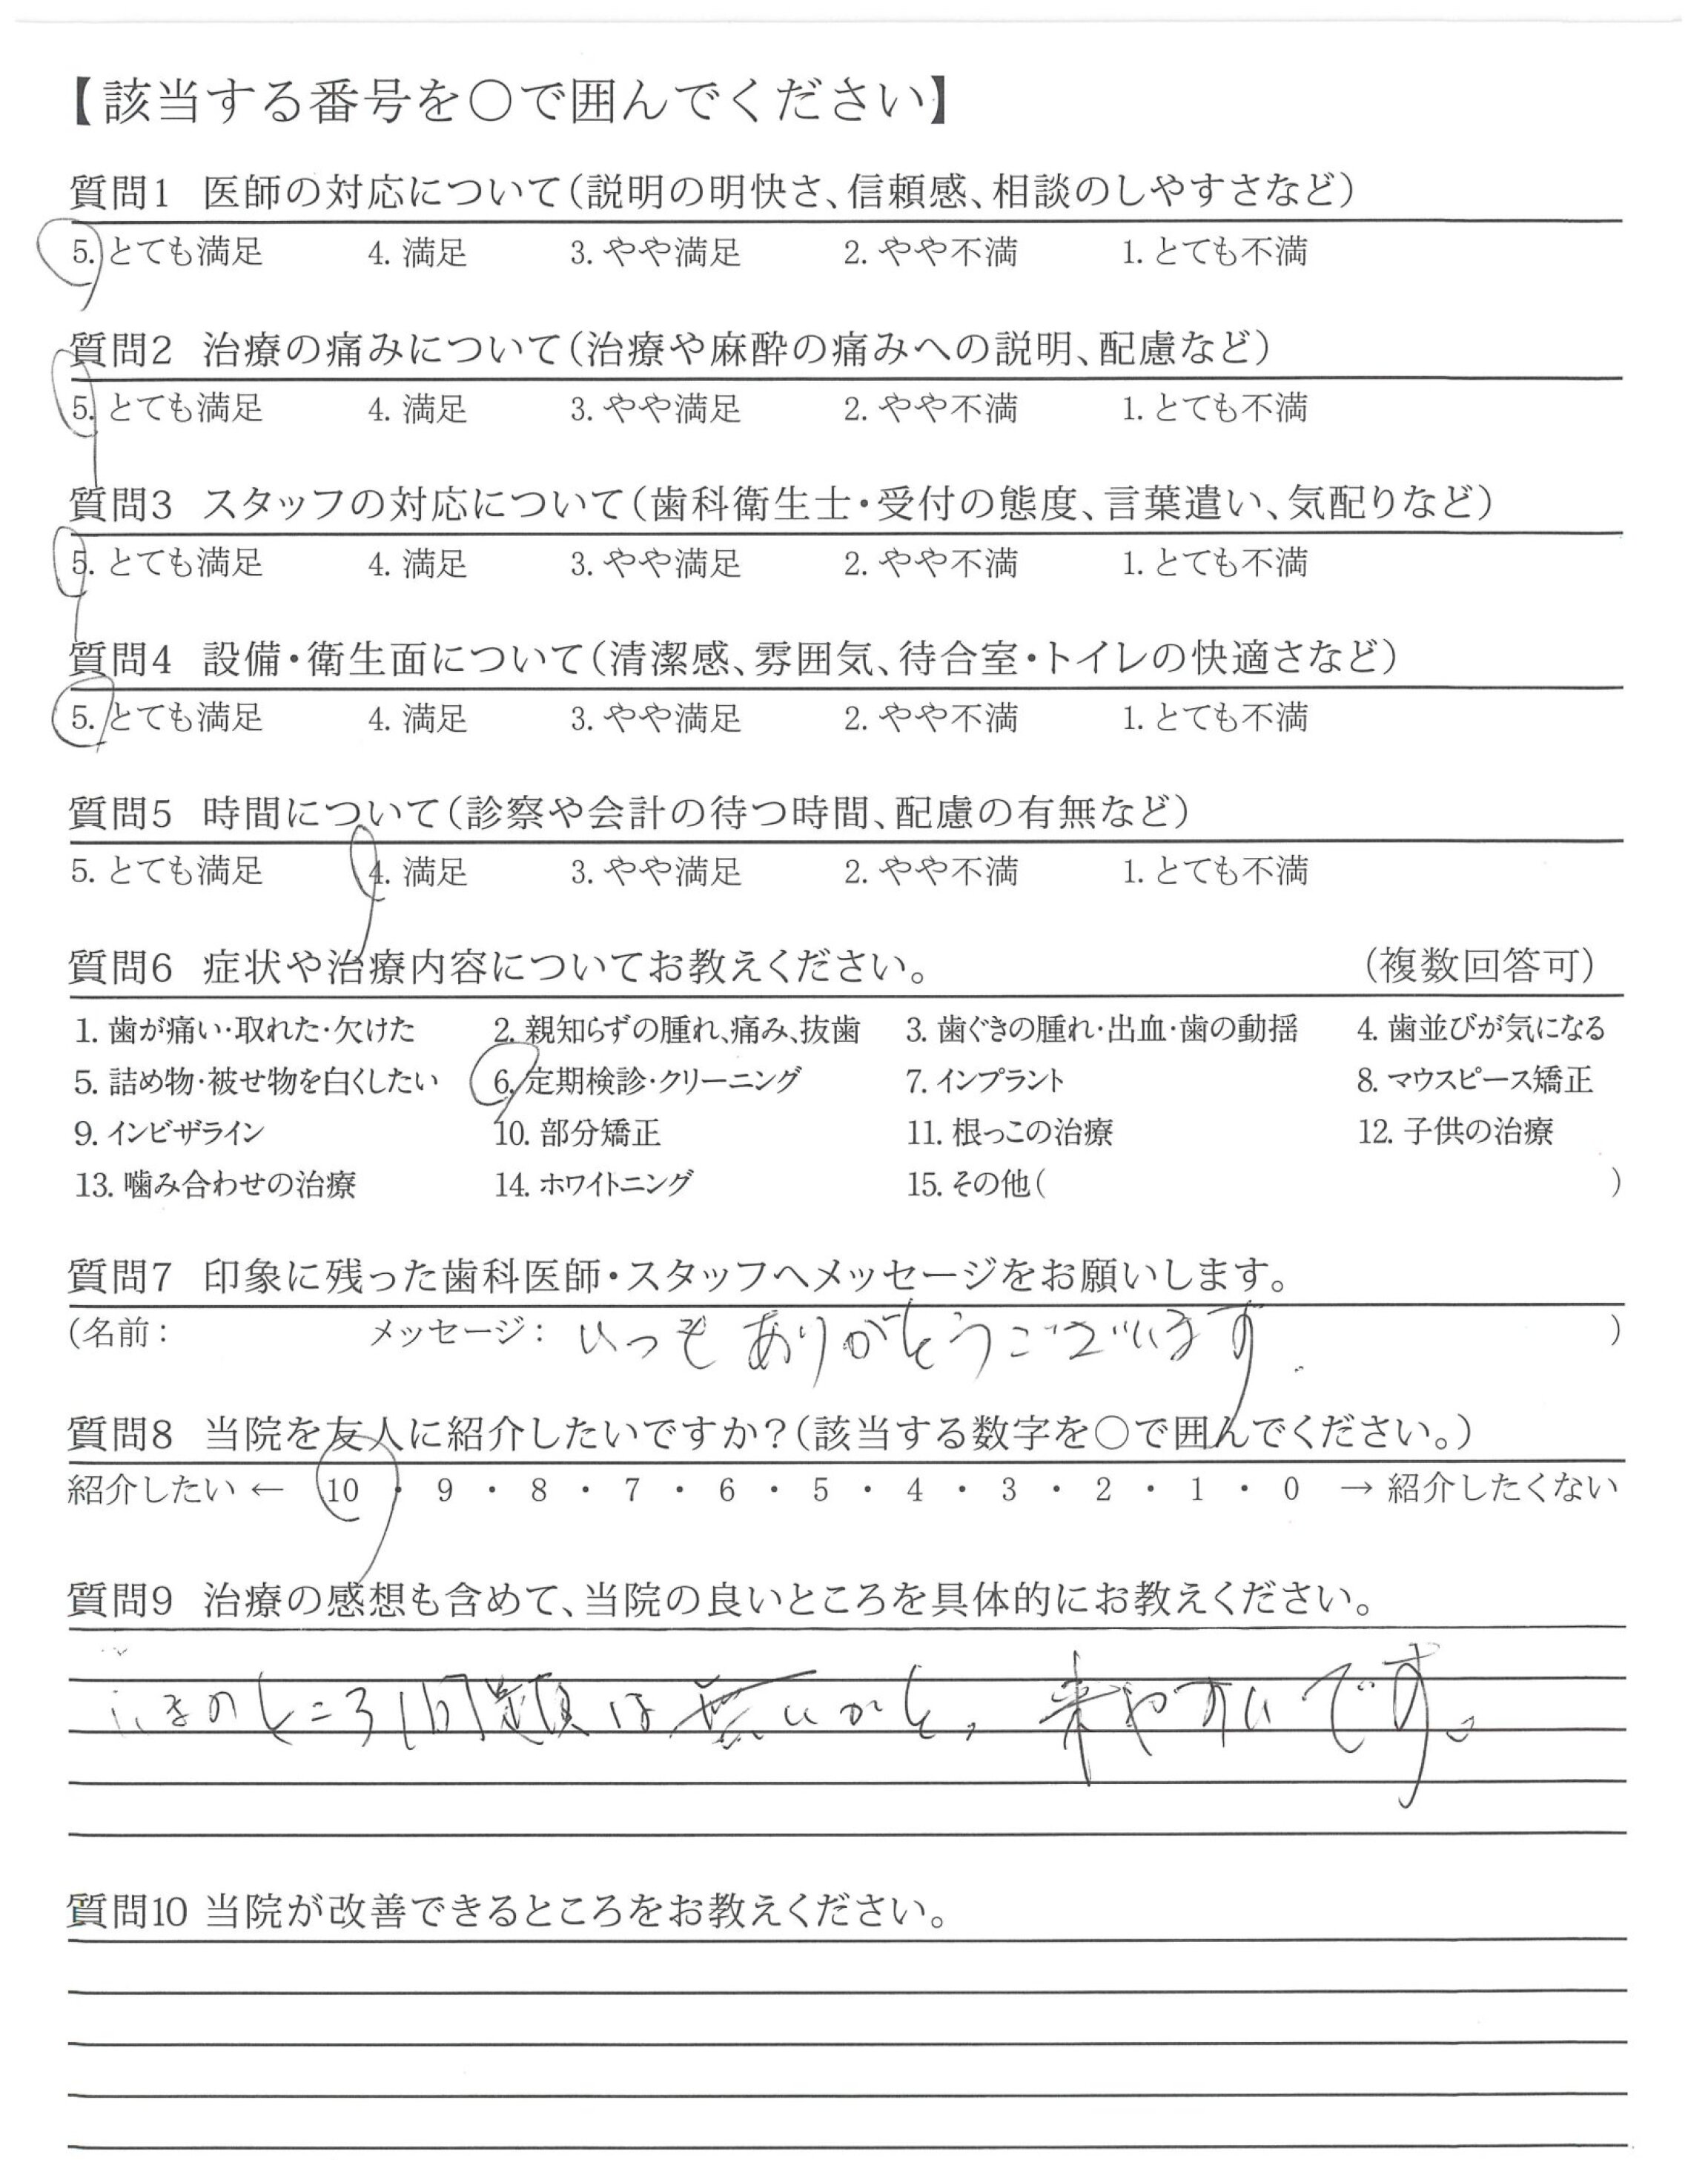 【該当する番号を〇で囲んでください】
質問1 医師の対応について(説明の明快さ、信頼感、相談のしやすさなど)
5. とても満足 4. 満足 3. やや満足 2. やや不満 1. とても不満
質問2 治療の痛みについて(治療や麻酔の痛みへの説明、配慮など)
5. とても満足 4. 満足 3. やや満足 2. やや不満 1. とても不満
質問3 スタッフの対応について(歯科衛生士・受付の態度、言葉遣い、気配りなど)
5. とても満足 4. 満足 3. やや満足 2. やや不満 1. とても不満
質問4 設備・衛生面について(清潔感、雰囲気、待合室・トイレの快適さなど)
5. とても満足 4. 満足 3. やや満足 2. やや不満 1. とても不満
質問5 時間について(診察や会計の待つ時間、配慮の有無など)
5. とても満足 4. 満足 3. やや満足 2. やや不満 1. とても不満
質問6 症状や治療内容についてお教えください。 (複数回答可)
1. 歯が痛い・取れた・欠けた 2. 親知らずの腫れ、痛み、抜歯 3. 歯ぐきの腫れ・出血・歯の動揺 4. 歯並びが気になる
5. 詰め物・被せ物を白くしたい 6. 定期検診・クリーニング 7. インプラント 8. マウスピース矯正
9. インビザライン 10. 部分矯正 11. 根っこの治療 12. 子供の治療
13. 噛み合わせの治療 14. ホワイトニング 15. その他( )
質問7 印象に残った歯科医師・スタッフへメッセージをお願いします。
(名前: メッセージ: いつもありがとうございます. )
質問8 当院を友人に紹介したいですか?(該当する数字を〇で囲んでください。)
紹介したい ← 10 ・ 9 ・ 8 ・ 7 ・ 6 ・ 5 ・ 4 ・ 3 ・ 2 ・ 1 ・ 0 → 紹介したくない
質問9 治療の感想も含めて、当院の良いところを具体的にお教えください。
いまのところ問題は無いかと、来やすいです。
質問10 当院が改善できるところをお教えください。